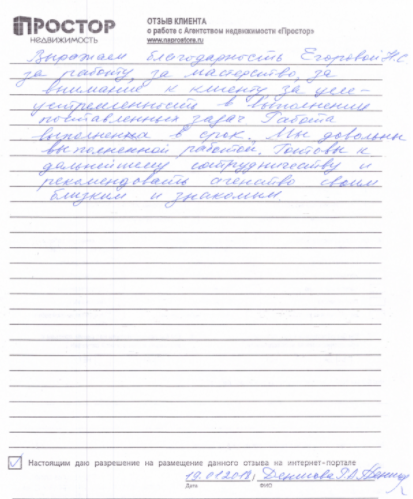 ПРОСТОР
НЕДВИЖИМОСТЬ
ОТЗЫВ КЛИЕНТА
о работе с Агентством недвижимости «Простор»
www.naprostore.ru
Выражаем благодарность Егоровой Н.С
за работу, за мастерство, за
внимание к клиенту за целе-
устремленность в выполнении
поставленных задач Работа
выполненна в срок. Мы довольны
выполненной работой. Готовы к
дальнейшему сотрудничеству и
рекомендовать агенство своим
близким и знакомым
Настоящим даю разрешение на размещение данного отзыва на интернет-портале
19.01.2018, Денисова
Дата ФИО